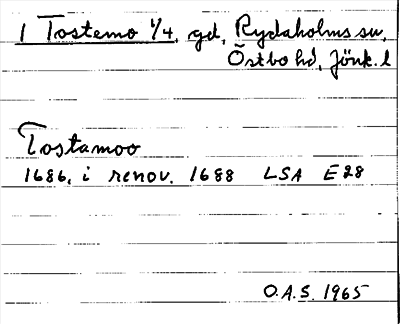 1 Tostemo 1/4, gd, Rydaholms sn,
Östbo hd, Jönk. l
Tostamoo
1686, i renov. 1688 LSA E28
O.A.S. 1965